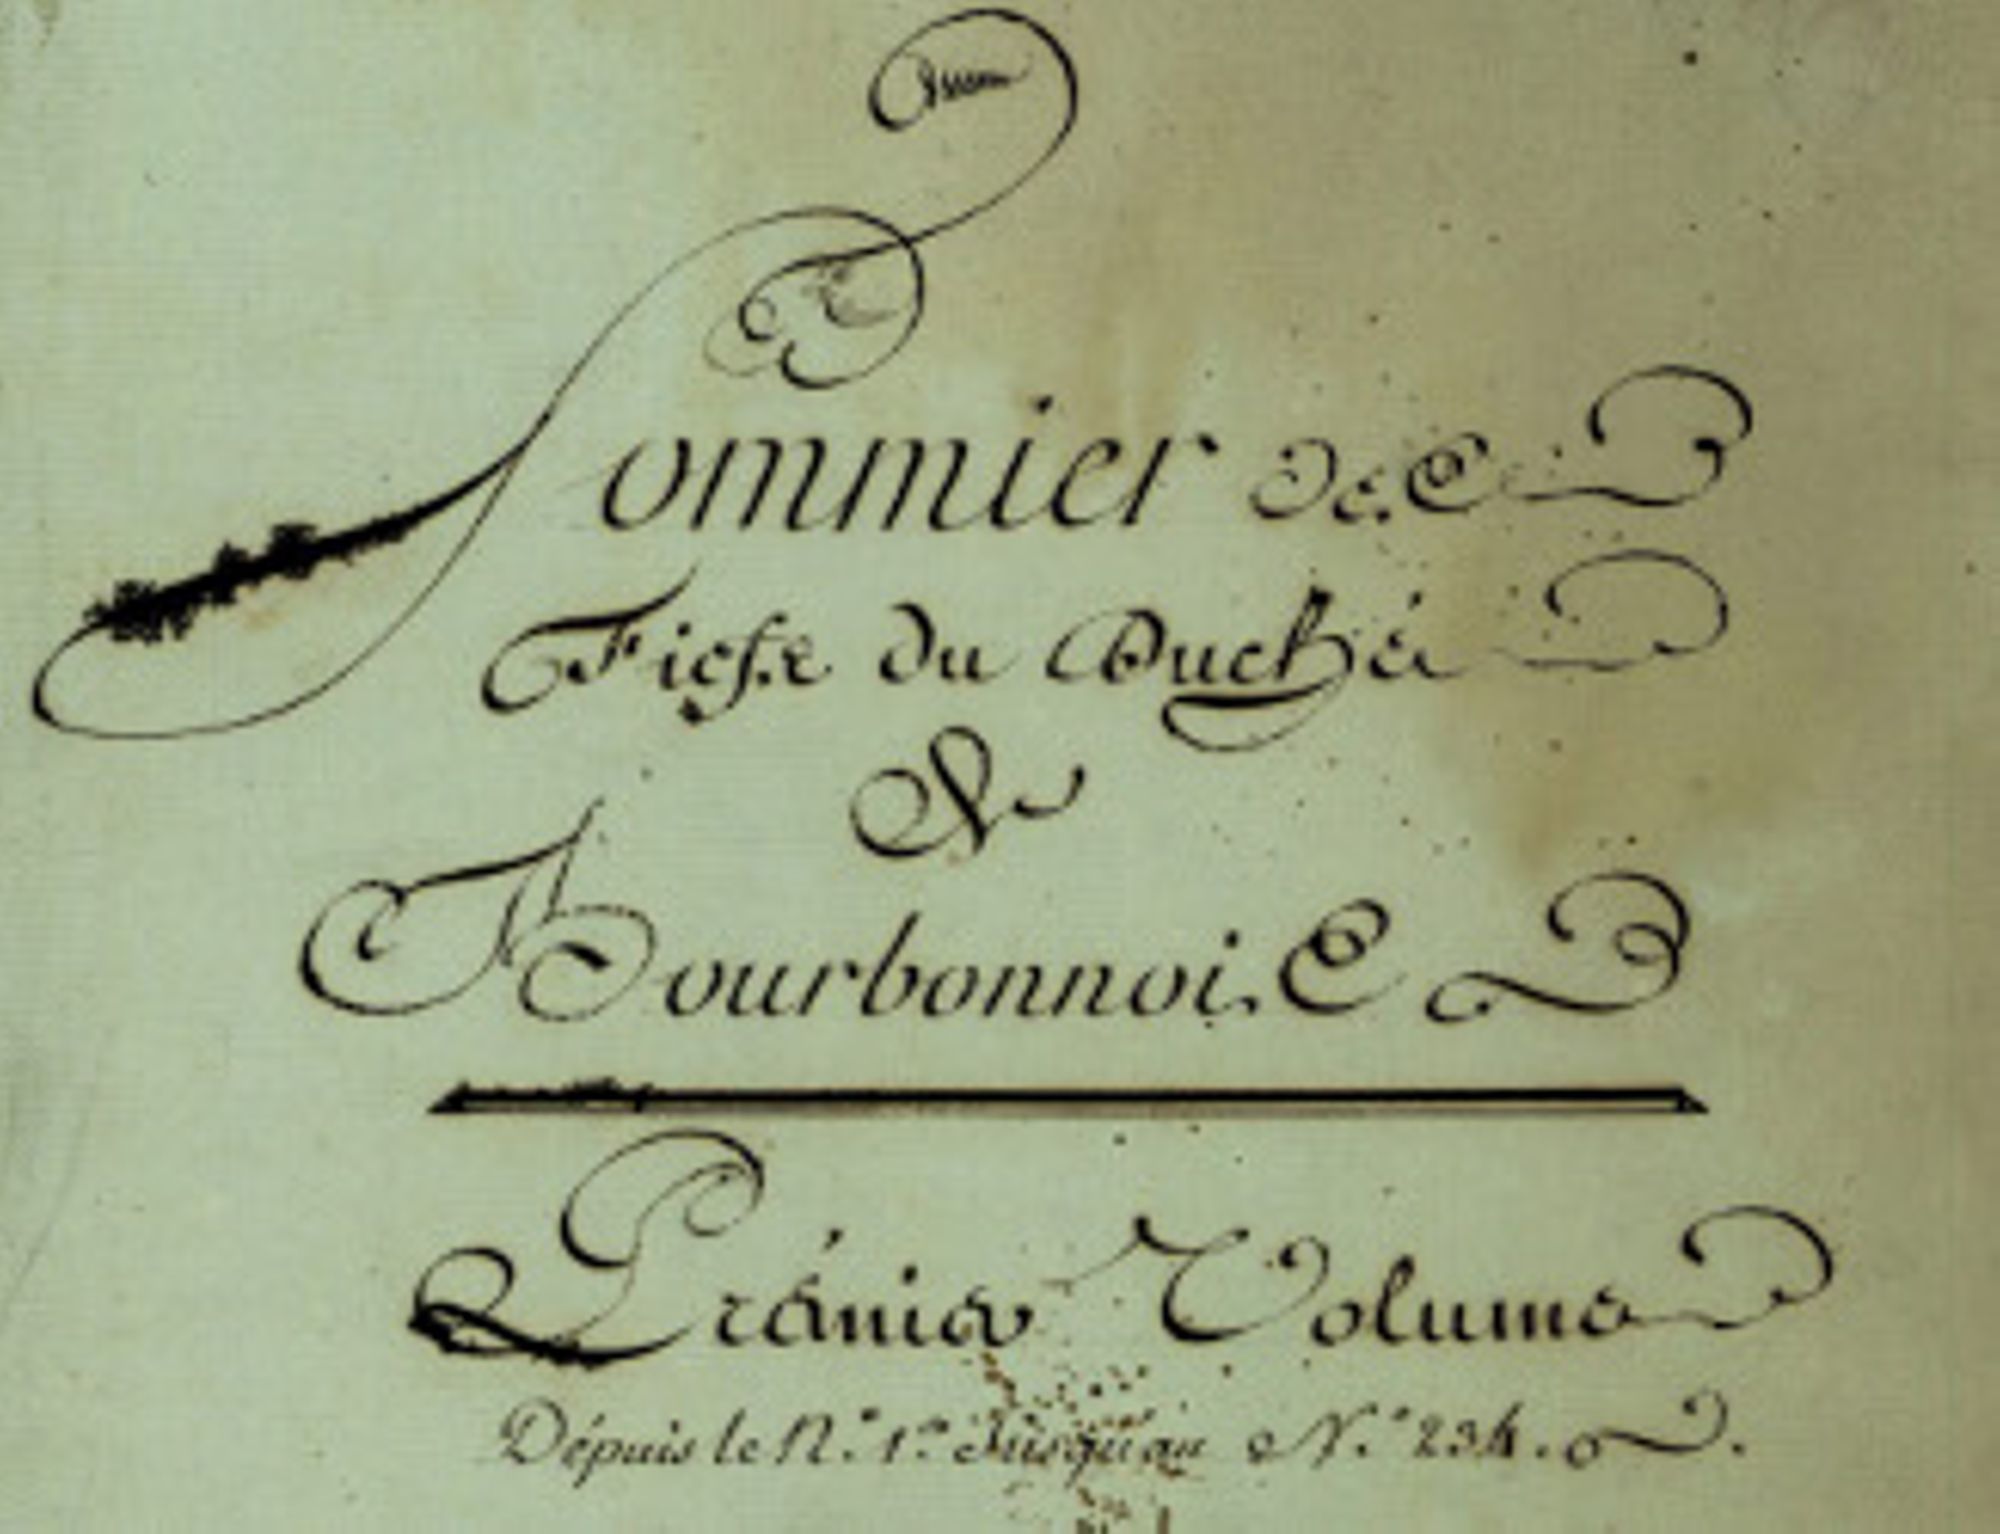 Sommier des
Fiefs du Duché
de
Bourbonnois
Prémier Volume
Dépuis le N.° 1.er Jusquau N.° 234.